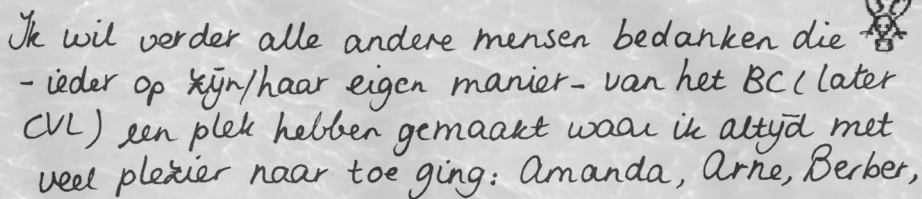 Ik wil verder alle andere mensen bedanken die
- ieder op zijn/haar eigen manier - van het BC (later
CVL) een plek hebben gemaakt waar ik altijd met
veel plezier naar toe ging: Amanda, Arne, Berber,